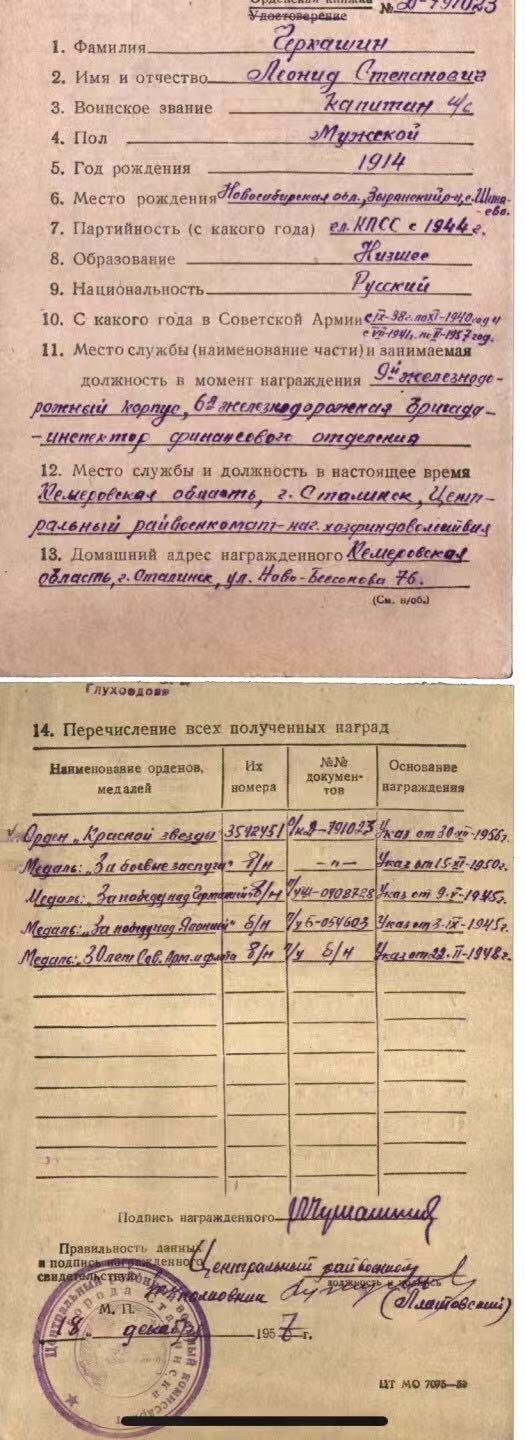 Орденская книжка
Удостоверение № Д-791023
1. Фамилия Черкашин
2. Имя и отчество Леонид Степанович
3. Воинское звание Капитан и/с
4. Пол Мужской
5. Год рождения 1914
6. Место рождения Новосибирская обл., Зырянский р-н, с. Шина-
ево.
7. Партийность (с какого года) чл. КПСС с 1944 г.
8. Образование Низшее
9. Национальность Русский
10. С какого года в Советской Армии с IX-38 г. по XI-1940 год и
с VII-1941 г. по II-1957 год.
11. Место службы (наименование части) и занимаемая
должность в момент награждения 9й железнодо-
рожный корпус, 6я железнодорожная бригада-
-инспектор финансового отделения
12. Место службы и должность в настоящее время
Кемеровская область, г. Сталинск, Цент-
ральный райвоенкомат-нач. хозфиндовольствия
13. Домашний адрес награжденного Кемеровская
область, г. Сталинск, ул. Ново-Бессонова 76.
(См. н/об.)
Глуховдовя
14. Перечисление всех полученных наград
Наименование орденов, медалей Их номера №№ документов Основание награждения
Орден „Красной звезды" 3542451 о/к Д-791023 Указ от 30-XII-1956г.
Медаль: „За боевые заслуги" б/н —"— Указ от 15-XI-1950г.
Медаль: „За победу над Германией" б/н п/у Ш-0408728 Указ от 9-V-1945г.
Медаль: „За победу над Японией" б/н п/у Б-054603 Указ от 3-IX-1945г.
Медаль: „30 лет Сов. Арм. и флота б/н п/у б/н Указ от 22-II-1948г.
Подпись награжденного
Правильность данных
и подпись награжденного Центральный райвоенком
свидетельствую: должность и
полковник (Платовский)
М. П.
18 „ декабря 1957 г.
ЦТ МО 7075—52